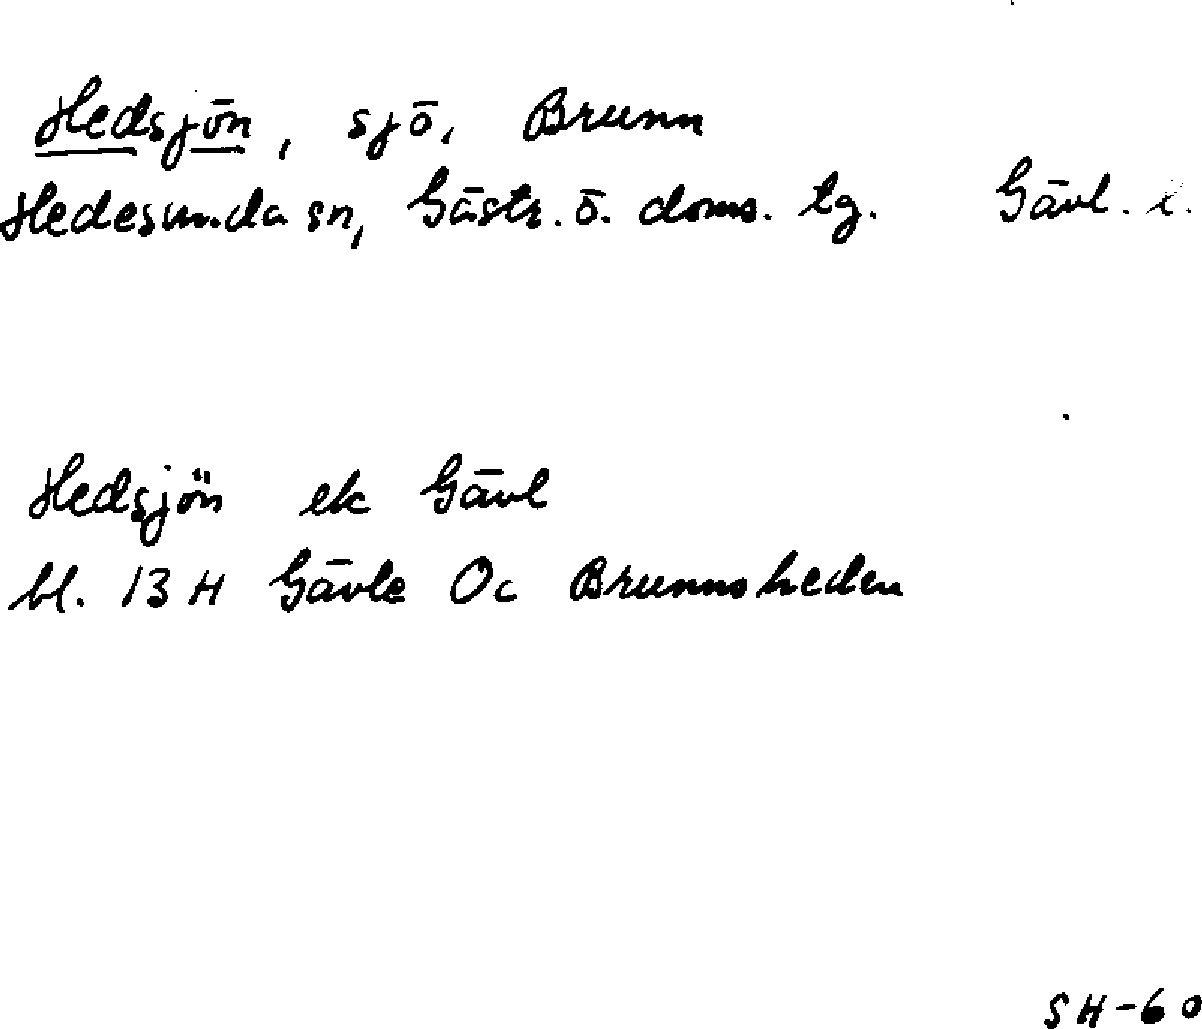 Hedsjön, sjö, Brunn
Hedesunda sn, Gästr. ö. doms. tg. Gävl. l.
Hedsjön ek Gävl
bl. 13 H Gävle Oc Brunnsheden
SH-60